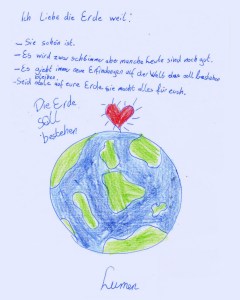 Ich Liebe die Erde weil:
- Sie schön ist.
- Es wird zwar schlimmer aber manche Leute sind auch gut.
- Es giebt immer neue Erfindungen auf der Welt das soll
bleiben.
- Seid stolz auf eure Erde sie macht alles für euch.
Die Erde
soll
bestehen
Lumen